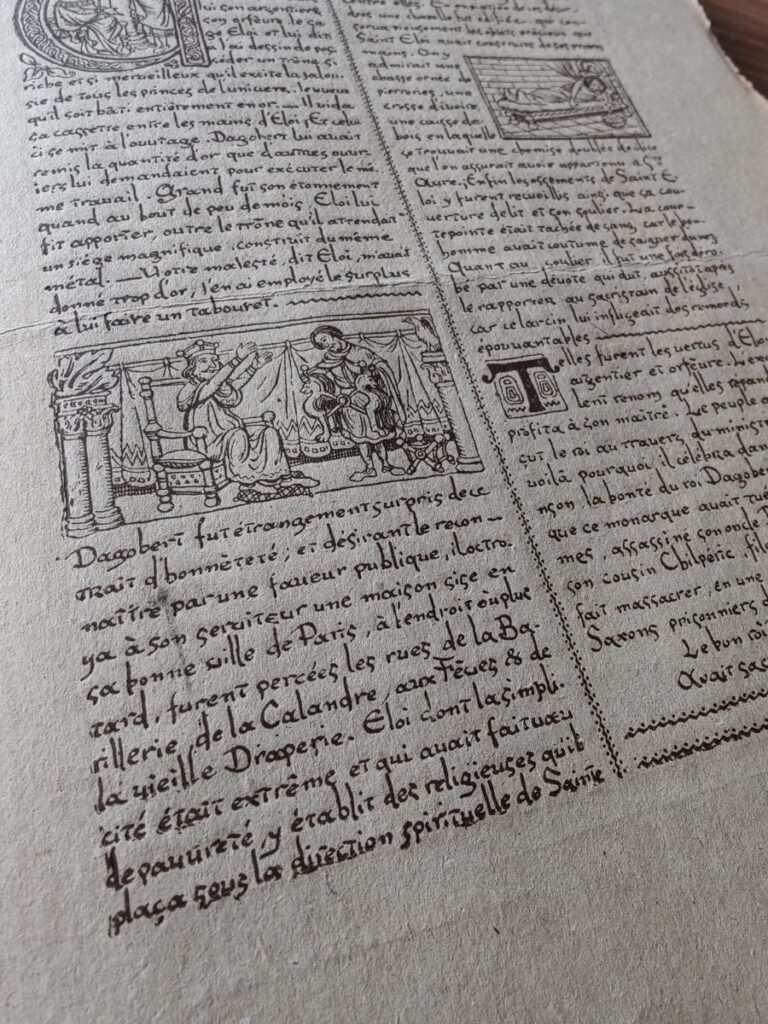 lui son argentier &
son orfèure le sa
ge Eloi et lui dit
J'ai dessin de pos
séder un trône si
riche et si merueilleux qu'il excite la jalou.
sie de tous les princes de l'uniuers, je ueux
qu'il soit bâti entièrement en or._ Il uida
sa cassette entre les mains d'Eloi, Et celui
ci se mit à l'ouurage. Dagobert lui auait
remis la quantité d'or que d'autres ouur
iers lui demandaient pour exécuter le mê.
me trauail. Grand fut son étonnement
quand au bout de peu de mois, Eloi lui
fit apporter, outre le trône qu'il attendait
un siége magnifique, construit du même
métal. _ Uotre majesté, dit Eloi, m'auait
donné trop d'or, j'en ai employé le surplus
à lui faire un tabouret.
Dagobert fut étrangement surpris de ce
trait d'honnèteté; et désirant le recon-
naître par une faueur publique, il octro.
ya à son seruiteur une maison sise en
sa bonne uille de Paris, à l'endroit où plus
tard, furent percées les rues de la Ba-
rillerie, de la Calandre, aux Fèues & de
la uieille Draperie. Eloi dont la simpli.
cité était extrême et qui auait fait uœu
de pauureté, y établit des religieuses qu'il
plaça sous la direction spirituelle de Sainte
dres une chasselle fut édifiée qui con
serua pieusement les objets précieux que
Saint Eloi auait construits de ses propres
mains. On y
admirait une
chasse ornée de
pierreries, une
crosse d'iuoire,
une caisse de
bois en laquelle
se trouuait une chemise doublée de duue
que l'on assurait auoir appartenu à Ste
Aure. Enfin les ossements de Saint E.
loi y furent recueillis ainsi que sa cou
uerture de lit et son soulier. La cour-
tepointe était tachée de sang car le bon
homme auait coutume de saigner du nez
Quant au soulier il fut une fois déro.
bé par une déuote qui dut, aussitôt après
le rapporter au sacristain de l'église,
car ce larcin lui infligeait des remords
épouuantables
Telles furent les uertus d'Eloi
argentier et orfèure. L'exce
lent renom qu'elles répand
profita à son maître. Le peuple a
çut le roi au trauers du minist
uoilà pourquoi il célébra dan
nson, la bonté du roi Dagobe
que ce monarque auait tué
mes, assassiné son oncle B
son cousin Chilpéric, fils
fait massacrer, en une
Saxons prisonniers d
Le bon roi
Auait sas